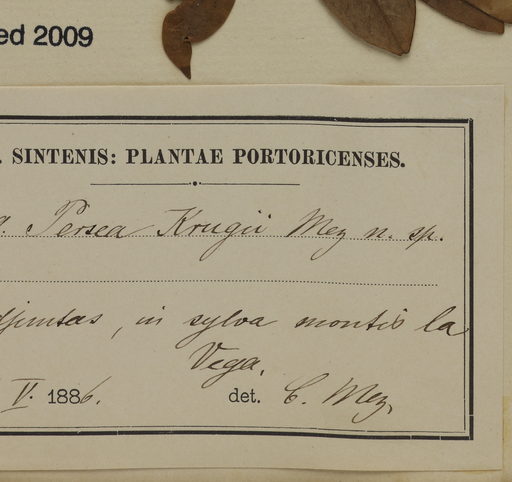 ed 2009
. SINTENIS: PLANTAE PORTORICENSES.
. Persea Krugii Mez n. sp.
djuntas, in sylva montis la
Vega.
V. 1886. det. C. Mez.